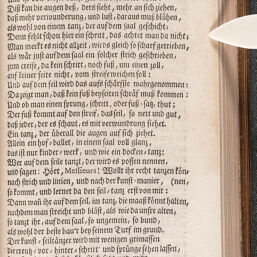 Diß kan die augen deß, ders sieht, mehr an sich ziehen,
daß mehr verwunderung, und lust, daraus muß blühen,
als wohl von einem tanz, der auf dem saal geschicht;
Denn fehlt schon hier ein schritt, das achtet man da nicht;
Man merkt es nicht allzeit, wirds gleich so scharf getrieben,
als wär just auf dem saal ein solcher strich geschrieben,
zum creise, da kein schritt, noch fuß, um einen zoll,
auf seiner seite nicht, vom streife weichen soll:
Und auf dem seil wird das aufs schärfste wahrgenommen:
Da zeigt man, daß kein fuß beyseiten schräf muß kommen:
Und ob man einen sprung, schritt, oder fuß-satz, thut;
Der fuß kommt auf den streif, das seil, so nett und gut,
daß jeder, der es schaut, es mit verwundrung siehet.
Ein tanz, der überall die augen auf sich ziehet.
Allein ein hof-ballet, in einem saal voll glanz,
das ist nur kinder-werk, und wie ein docken-tanz:
Wer auf dem seile tanzt, der wird es possen nennen,
und sagen: Hört, Meslieurs! Wollt ihr recht tanzen kön-
nach strich und linien, und nach der kunst-manier, (nen,
so kommt, und lernet da den seil-tanz erst von mir:
Dann wañ ihr auf dem seil, im tanz, die maaß könnt halten,
nachdem man streicht und bläst, als wie da unsre alten,
so tanzt ihr, auf dem saal, so ungemein, so bund,
als wohl der beste bau'r bey seinem Turf im grund.
Der kunst-seiltänzer wird mit wenigen grimassen
die creutz-vor-hinter-schritt und sprünge sehen lassen,